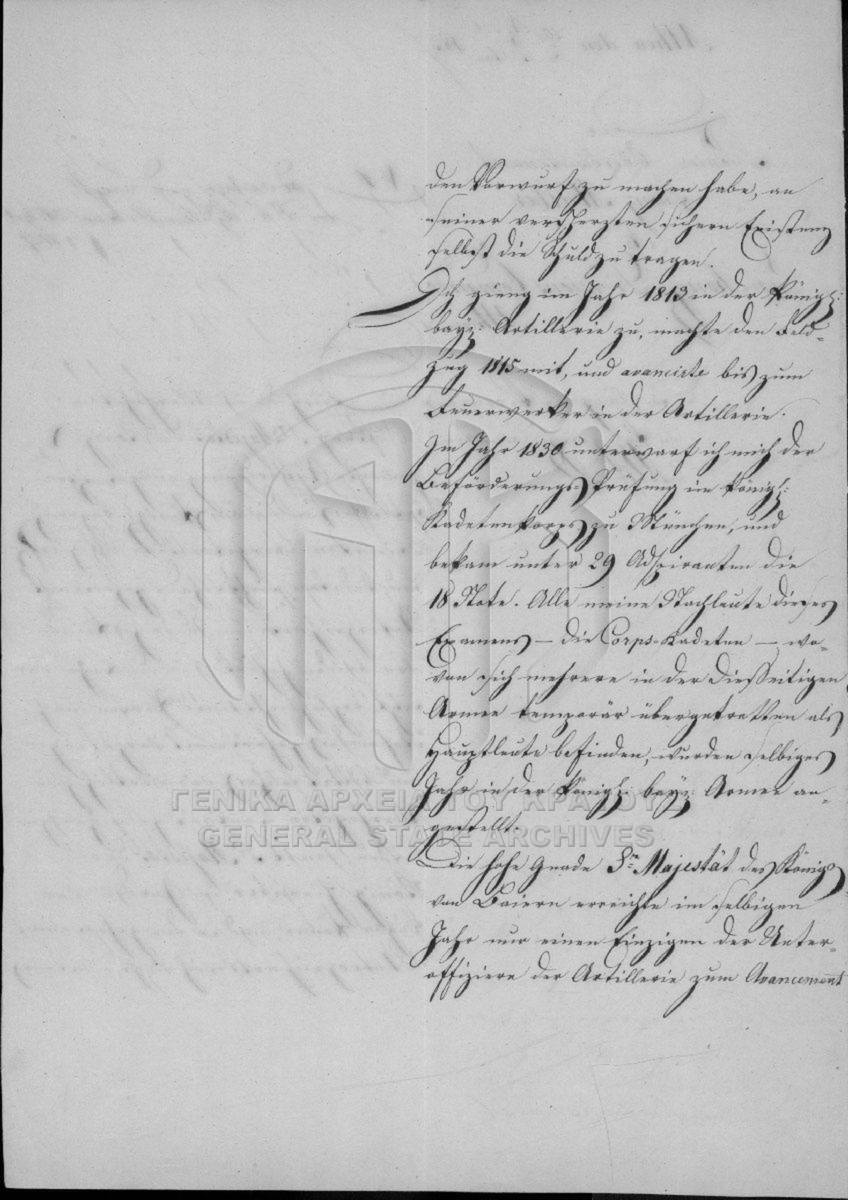 den Vorwurf zu machen habe, an
seiner verscherzten sichern Existenz
selbst die Schuld zu tragen.
Ich gieng im Jahr 1813 in der Königl:
bayr: Artillerie zu, machte den Feld-
zug 1815 mit, und avancirte bis zum
Feuerwerker in der Artillerie.
Im Jahr 1830 unterwarf ich mich der
Beförderungs-Prüfung im Königl:
Kadetenkorps zu München, und
bekam unter 29 Adspiranten die
18 Note. Alle meine Nachleute dieses
Examens – die Corps-Kadeten – wo-
von sich mehrere in der diesseitigen
Armee temporär übergetretten als
Hauptleute befinden, wurden selbiges
Jahr in der Königl: bayr: Armee an-
gestellt.
Die hohe Gnade Sr. Majestät des Königs
von Baiern erreichte im selbigen
Jahr nur einen Einzigen der Unter-
offiziere der Artillerie zum Avancement
ΓΕΝΙΚΑ ΑΡΧΕΙΑ ΤΟΥ ΚΡΑΤΟΥΣ
GENERAL STATE ARCHIVES